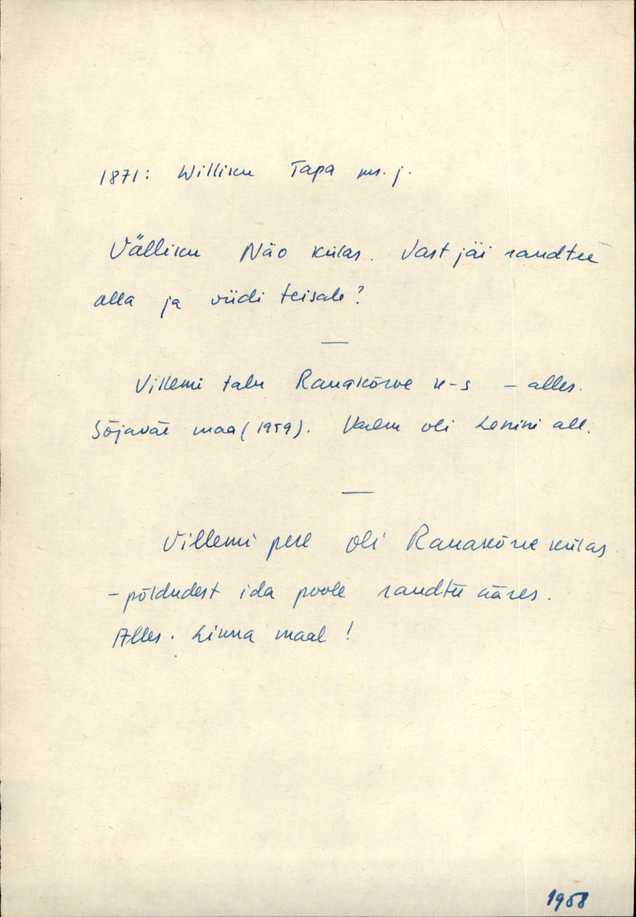 1871: Williku Tapa ms. j.
Välliku Näo külas. Vast jäi raudtee
alla ja viidi teisale?
—
Villemi talu Rauakõrve k-s – alles.
Sõjaväe maa (1959). Varem oli Lenini all.
—
Villemi pere oli Rauakõrve külas
– põldudest ida poole raudtee ääres.
Alles. Linna maal!
1968